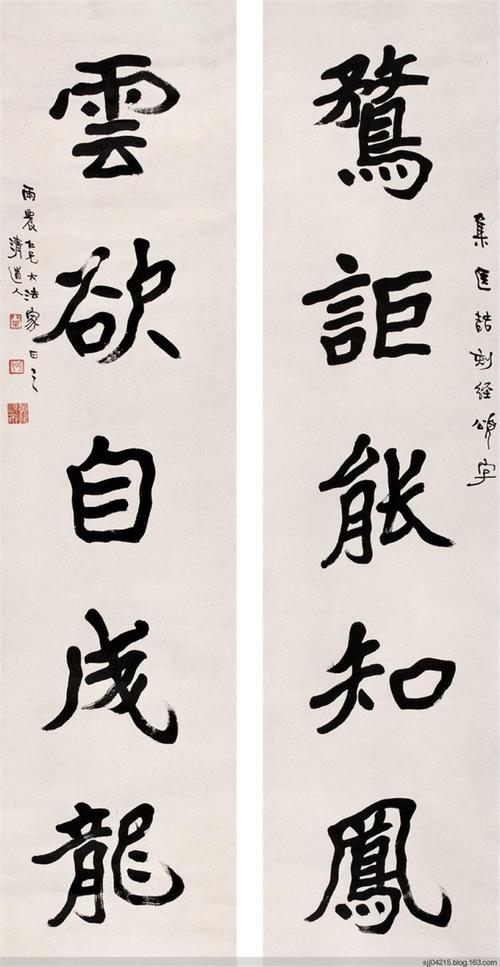 集匡喆刻經頌字
鶩詎能知鳳
雲欲自成龍
雨農仁兄大法家正之
清道人
sjj04215.blog.163.com